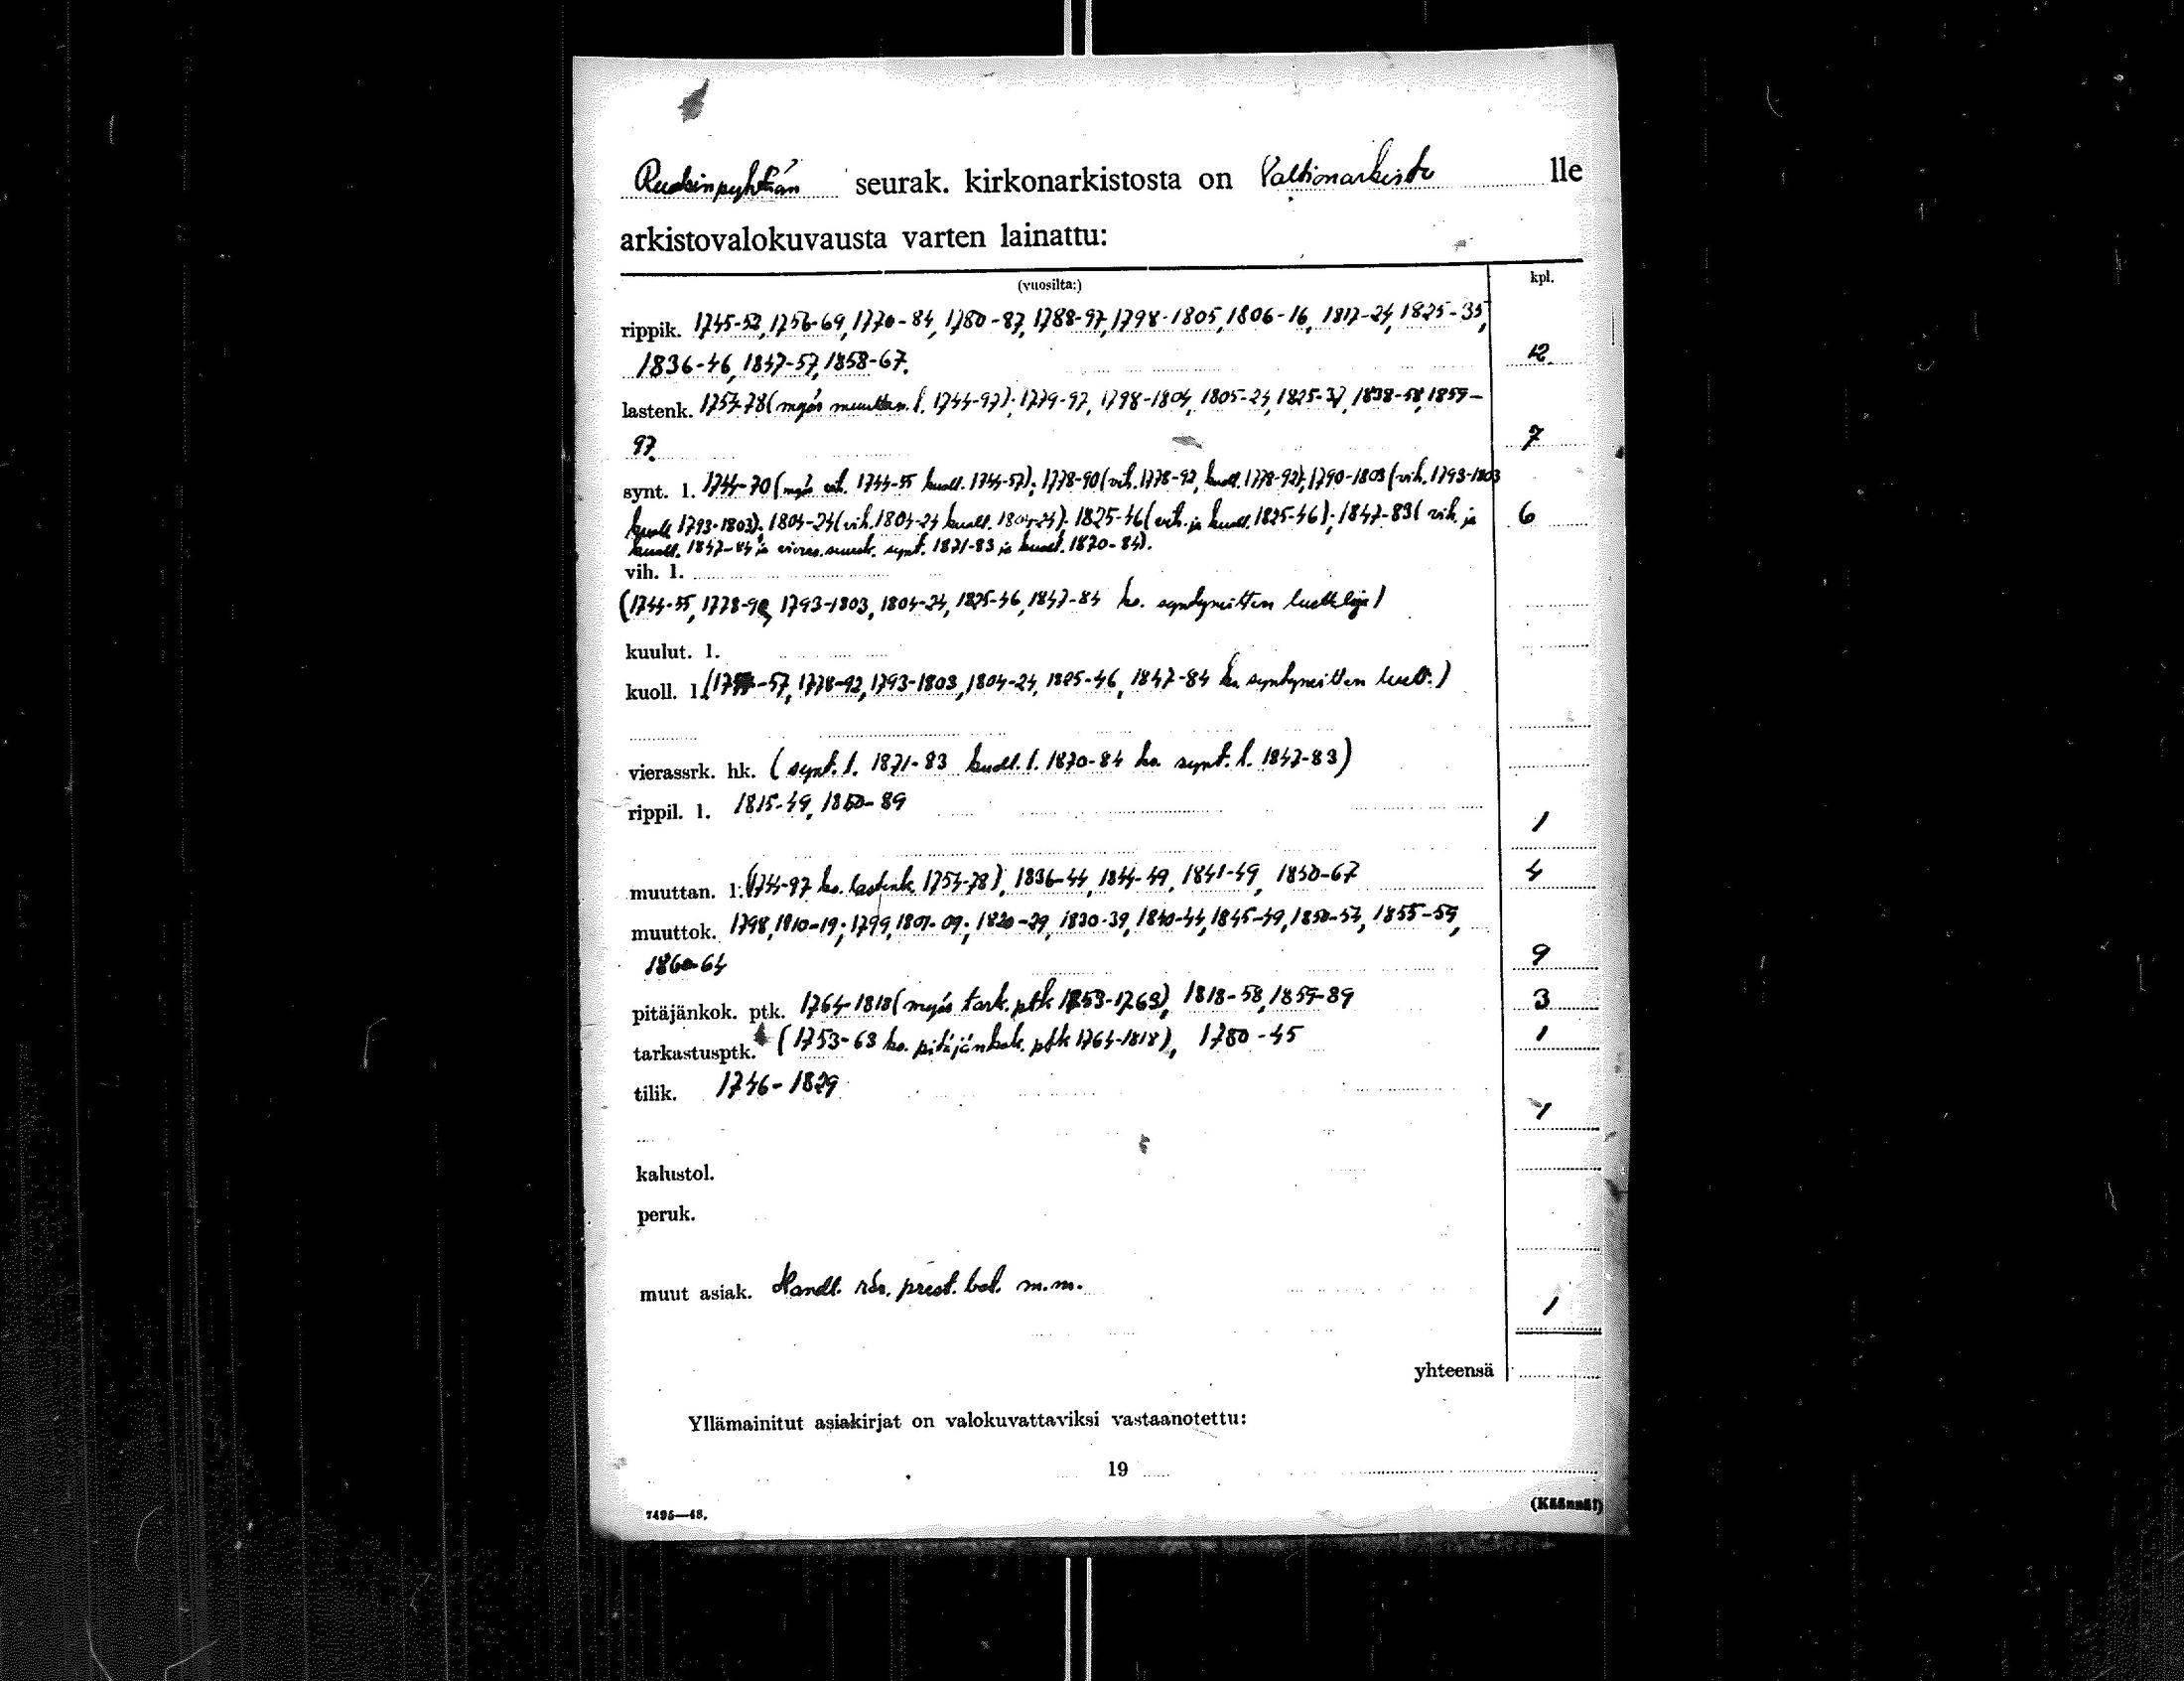 Ruotsinpyhtään seurak. kirkonarkistosta on Valtionarkisto lle
arkistovalokuvausta varten lainattu:
(vuosilta:) kpl.
rippik. 1745-52, 1756-69, 1770-84, 1780-87, 1788-97, 1798-1805, 1806-16, 1817-24, 1825-35,
1836-46, 1847-57, 1858-67. 12
lastenk. 1754-78 (myös muuttan. l. 1744-97); 1779-97, 1798-1804, 1805-24, 1825-37, 1838-58, 1859-
97. 7
synt. l. 1744-70 (myös vih. 1744-55 kuoll. 1744-57); 1778-90 (vih. 1778-92, kuoll. 1778-92); 1790-1803 (vih. 1793-1803
kuoll. 1793-1803); 1804-24 (vih. 1804-24 kuoll. 1804-24); 1825-46 (vih. ja kuoll. 1825-46); 1847-83 (vih. ja 6
kuoll. 1847-84 ja vieras. seurak. synt. 1871-83 ja kuoll. 1870-84).
vih. l.
(1744-55, 1778-92, 1793-1803, 1804-24, 1825-46, 1847-84 ks. syntyneitten luetteloja)
kuulut. l.
kuoll. l. -57, 1778-92, 1793-1803, 1804-24, 1825-46, 1847-84 ks. syntyneitten luett.)
vierassrk. hk. (synt. l. 1871-83 kuoll. l. 1870-84 ks. synt. l. 1847-83)
rippil. l. 1815-49, 1850-89 1
muuttan. l. (1744-97 ks. lastenk. 1754-78), 1836-44, 1844-49, 1841-49, 1850-67 4
muuttok. 1798, 1810-19; 1799, 1801-09; 1820-29, 1830-39, 1840-44, 1845-49, 1850-54, 1855-59,
1860-64 9
pitäjänkok. ptk. 1764-1818 (myös tark. ptk 1753-1763), 1818-58, 1859-89 3
tarkastusptk. (1753-63 ks. pitäjänkok. ptk 1764-1818), 1780-45 1
tilik. 1746-1829
1
kalustol.
peruk.
muut asiak. Handl. rör. prest. bol. m.m. 1
yhteensä
Yllämainitut asiakirjat on valokuvattaviksi vastaanotettu:
19
7495—48. (Käännä!)